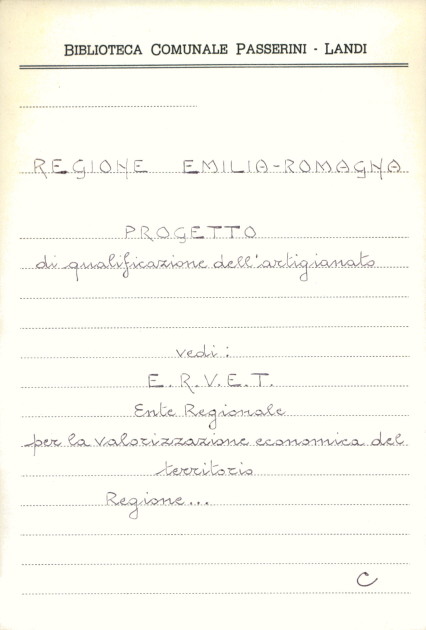 BIBLIOTECA COMUNALE PASSERINI - LANDI
REGIONE EMILIA-ROMAGNA
PROGETTO
di qualificazione dell'artigianato
vedi:
E.R.V.E.T.
Ente Regionale
per la valorizzazione economica del
territorio
Regione...
C